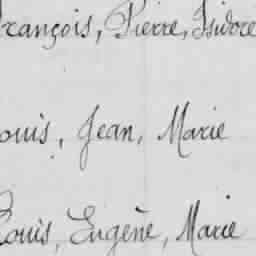 François, Pierre, Isidore
Louis, Jean, Marie
Louis, Eugène, Marie